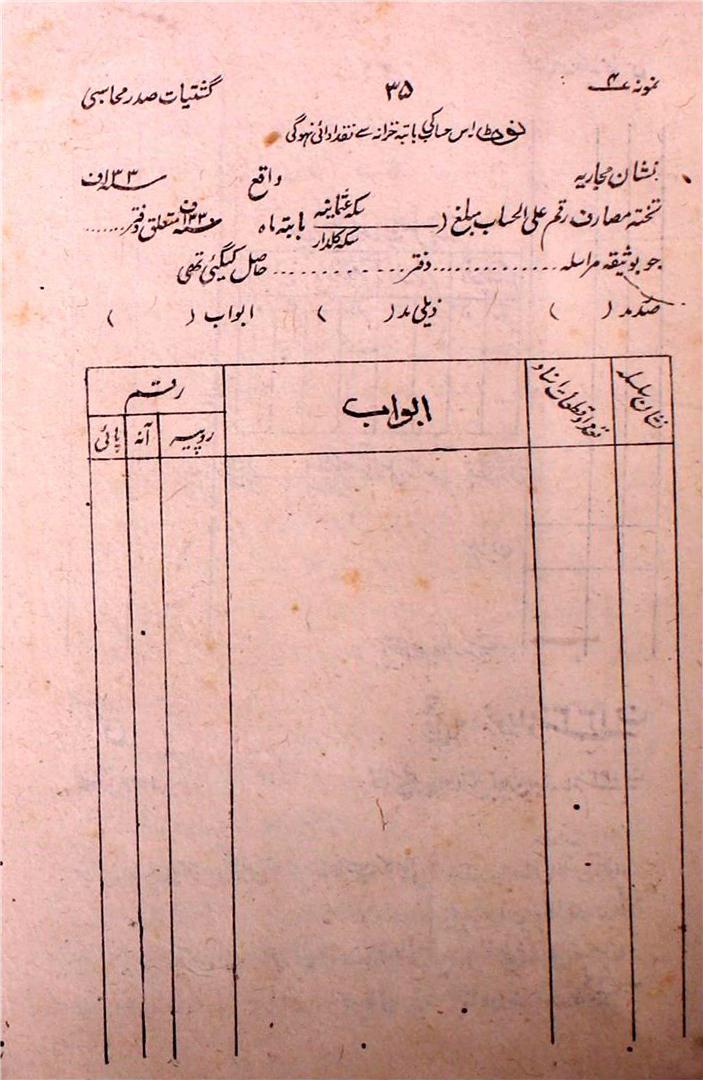 نمونہ ۴ ۳۵ گشتیات صدر محاسبی
نوٹ۔ اس حساب کی بابتہ خزانہ سے نقد ادائی نہوگی
نشان مجاریہ واقع ۱۳۳ ف
تختہ مصارف رقم علی الحساب مبلغ ( سکہ عثمانیہ / سکہ کلدار بابتہ ماہ ۱۳۳ ف متعلق دفتر ......
جو بوثیقہ مراسلہ ............ دفتر ............ حاصل کیگئی تھی
صدر مد ( ) ذیلی مد ( ) ابواب ( )
نشان سلسلہ تعداد قطعات اسناد ابواب رقم
روپیہ آنہ پائی